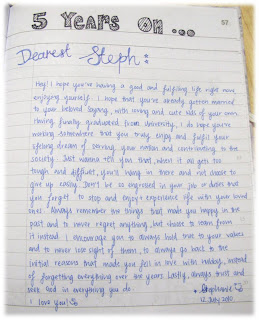 57
5 YEARS ON ...
Dearest Steph:
Hey! I hope you're having a good and fulfilling life right now
enjoying yourself. I hope that you've already gotten married
to your beloved, with loving and cute kids of your own.
Having finally graduated from university, I do hope you're
working somewhere that you truly enjoy and fulfil your
lifelong dream of serving your nation and contributing to the
society. Just wanna tell you that when it all gets too
tough and difficult, you'll hang in there and not choose to
give up easily. Don't be so engrossed in your job or duties that
you forget to stop and enjoy & experience life with your loved
ones. Always remember the things that made you happy in the
past and to never regret anything, but choose to learn from
it instead. I encourage you to always hold true to your values
and to never lose sight of them, to always go back to the
initial reasons that made you fall in love with instead
of forgetting everything over the years. Lastly, always trust and
seek God in everything you do.
I love you!
Stephanie
12 July 2010